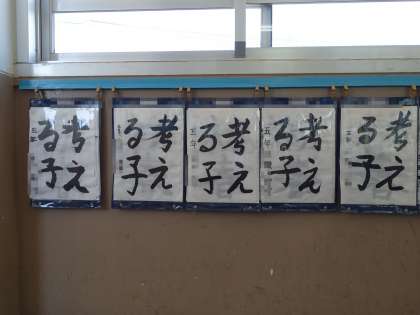 考え
る子
五年
考え
る子
考え
る子
五年
考え
る子
五年
考え
る子
五年